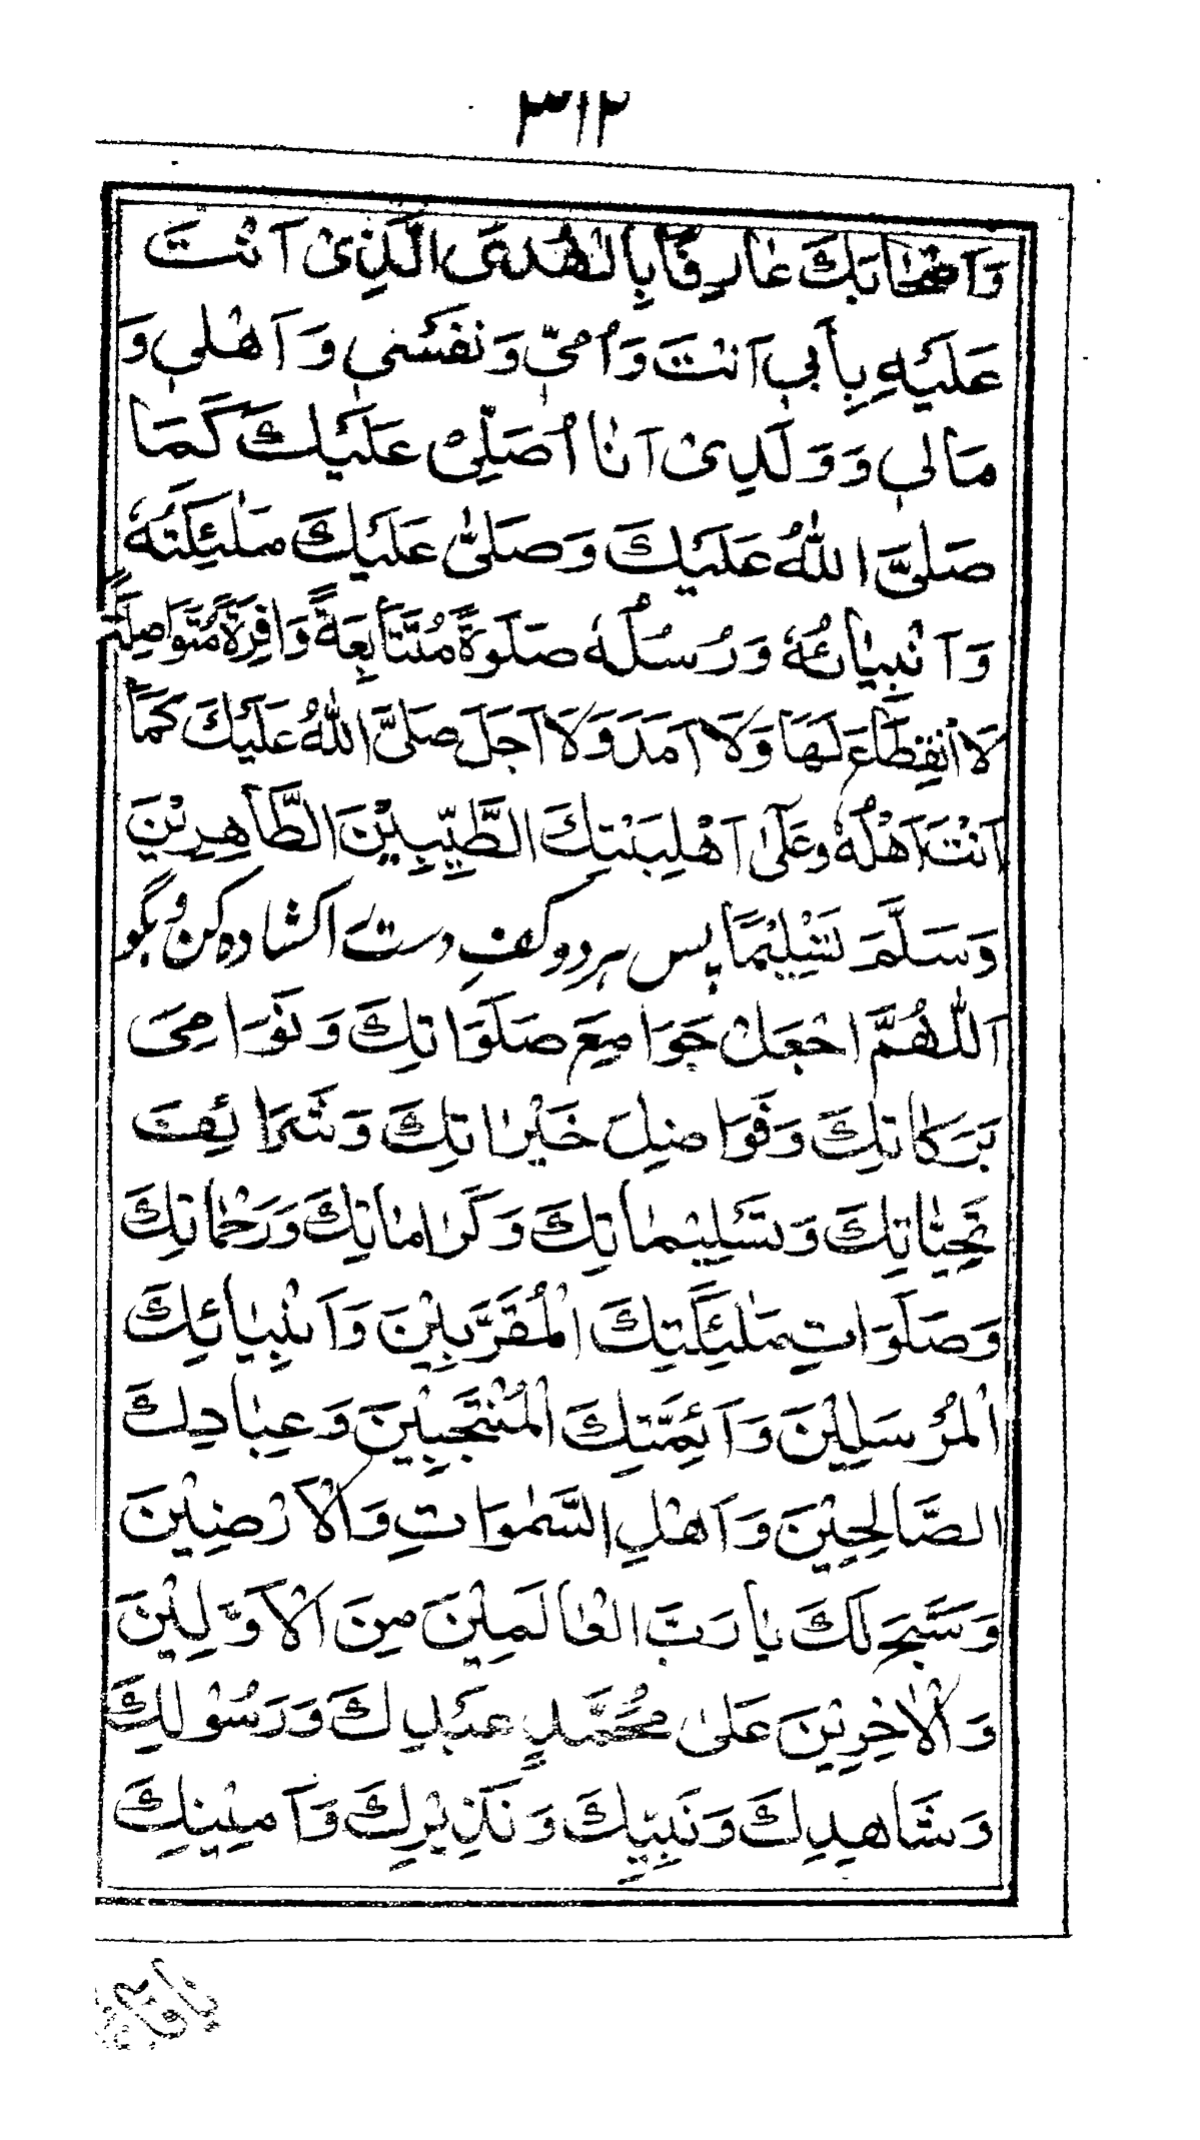 ٣١٢
وَاَصْحَابِكَ عَارِفًا بِالْهُدَى الَّذِىْ اَنْتَ
عَلَيْهِ بِأَبِى اَنْتَ وَاُمِّىْ وَنَفْسِىْ وَاَهْلِىْ وَ
مَالِىْ وَ وَلَدِىْ اَنَا اُصَلِّىْ عَلَيْكَ كَمَا
صَلَّى اللّٰهُ عَلَيْكَ وَصَلّٰى عَلَيْكَ مَلٰئِكَتُهُ
وَ اَنْبِيَائُهُ وَرُسُلُهُ صَلٰوةً مُتَتَابِعَةً وَافِرَةً مُتَوَاصِلَةً
لَا انْقِطَاعَ لَهَا وَلَا اَمَدَ وَلَا اَجَلَ صَلَّى اللّٰهُ عَلَيْكَ كَمَا
اَنْتَ اَهْلُهُ وَعَلٰى اَهْلِبَيْتِكَ الطَّيِّبِيْنَ الطَّاهِرِيْنَ
وَسَلَّمَ تَسْلِيْمًا پس هر دو کف دست را کشاده کن و بگو
اَللّٰهُمَّ اجْعَلْ جَوَامِعَ صَلَوَاتِكَ وَنَوَامِىَ
بَرَكَاتِكَ وَفَوَاضِلَ خَيْرَاتِكَ وَشَرَائِفَ
تَحِيَّاتِكَ وَتَسْلِيْمَاتِكَ وَكَرَامَاتِكَ وَرَحْمَاتِكَ
وَصَلَوَاتِ مَلٰئِكَتِكَ الْمُقَرَّبِيْنَ وَاَنْبِيَائِكَ
الْمُرْسَلِيْنَ وَاَئِمَّتِكَ الْمُنْتَجَبِيْنَ وَعِبَادِكَ
الصَّالِحِيْنَ وَاَهْلِ السَّمٰوَاتِ وَالْاَرْضِيْنَ
وَمَنْ سَبَّحَ لَكَ يَا رَبَّ الْعَالَمِيْنَ مِنَ الْاَوَّلِيْنَ
وَالْاٰخِرِيْنَ عَلٰى مُحَمَّدٍ عَبْدِكَ وَرَسُوْلِكَ
وَشَاهِدِكَ وَنَبِيِّكَ وَنَذِيْرِكَ وَاَمِيْنِكَ